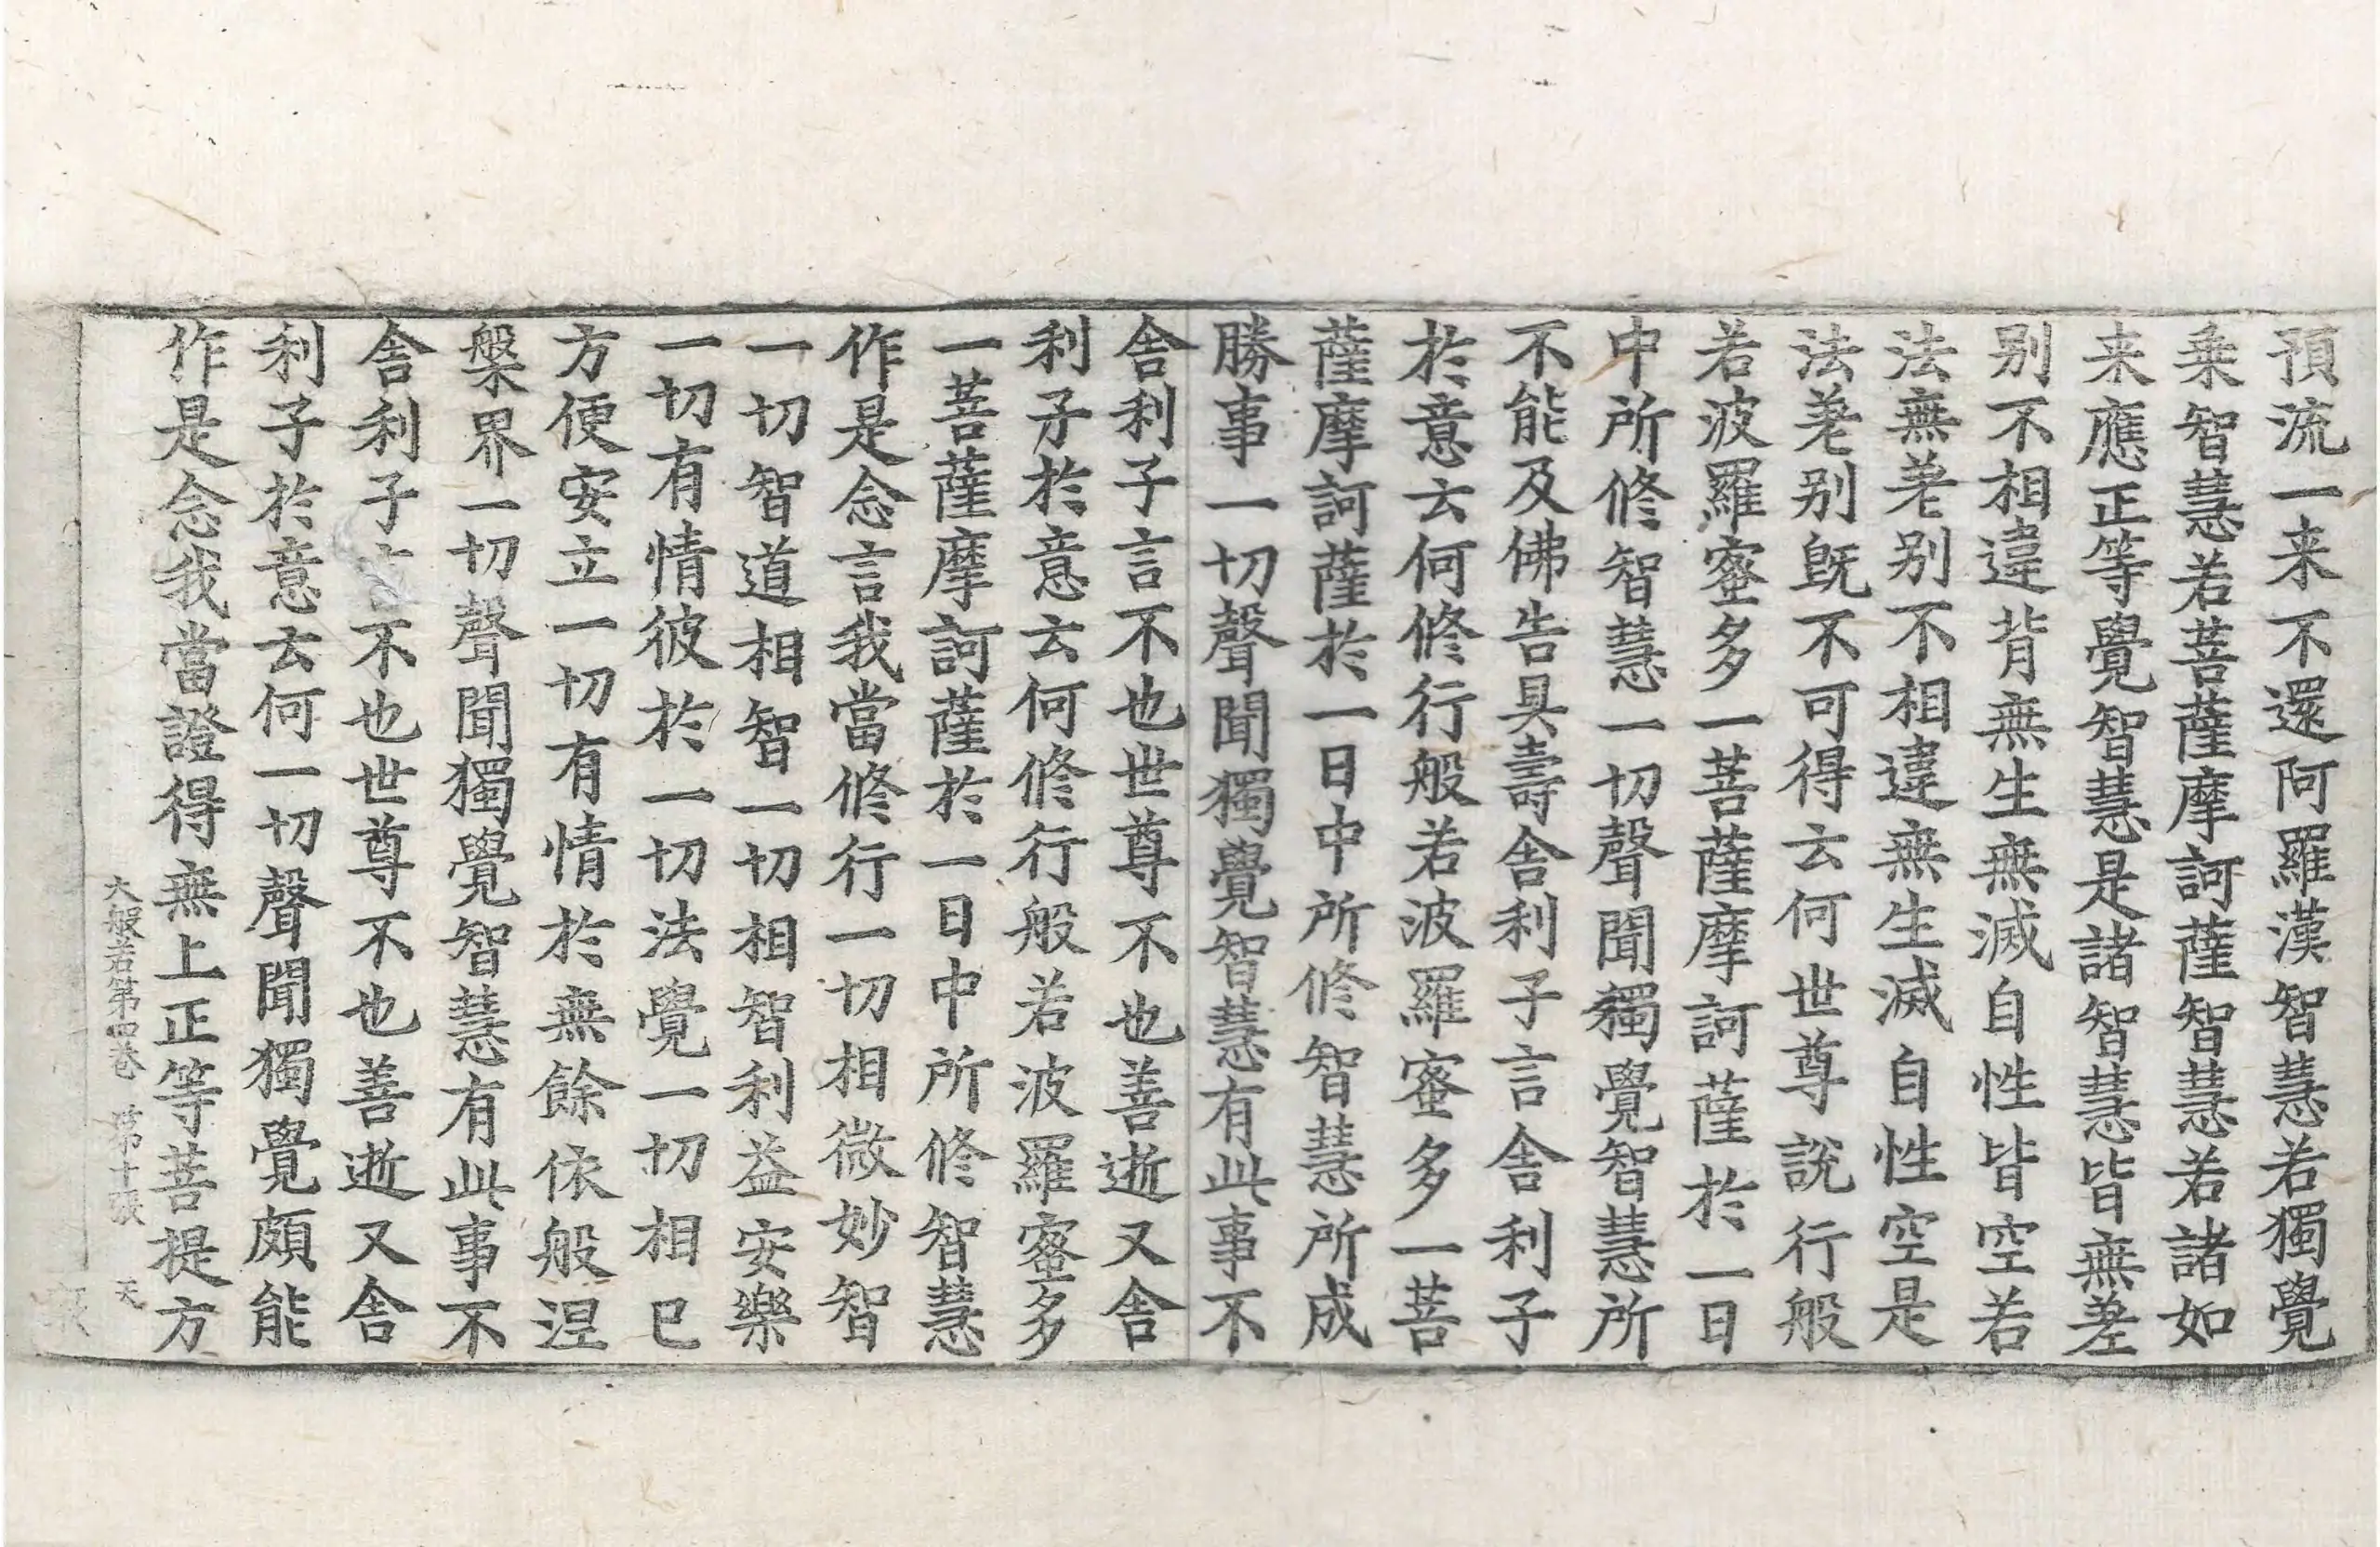 預流一来不還阿羅漢智慧若獨覺
乗智慧若菩薩摩訶薩智慧若諸如
来應正等覺智慧是諸智慧皆無差
别不相違背無生無滅自性皆空若
法無差别不相違無生滅自性空是
法差别既不可得云何世尊說行般
若波羅蜜多一菩薩摩訶薩於一日
中所修智慧一切聲聞獨覺智慧所
不能及佛告具壽舎利子言舎利子
於意云何修行般若波羅蜜多一菩
薩摩訶薩於一日中所修智慧所成
勝事一切聲聞獨覺智慧有此事不
舎利子言不也世尊不也善逝又舎
利子於意云何修行般若波羅蜜多
一菩薩摩訶薩於一日中所修智慧
作是念言我當修行一切相微妙智
一切智道相智一切相智利益安樂
一切有情彼於一切法覺一切相已
方便安立一切有情於無餘依般涅
槃界一切聲聞獨覺智慧有此事不
舎利子不也世尊不也善逝又舎
利子於意云何一切聲聞獨覺頗能
作是念我當證得無上正等菩提方
大般若第四卷 第十張 天